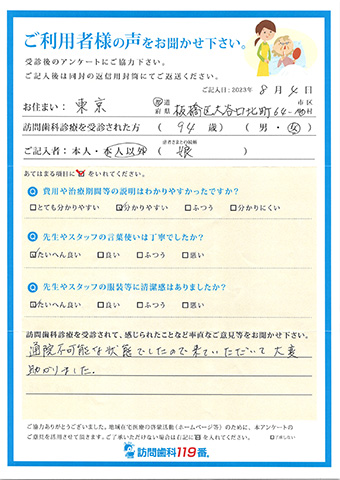 ご利用者様の声をお聞かせ下さい。
受診後のアンケートにご協力下さい。
ご記入後は同封の返信用封筒にてご返送ください。
ご記入日:2023年 8月4日
お住まい: 東京 都道府県 板橋区大谷口北町64- 市区町村
訪問歯科診療を受診された方 ( 94 歳) ( 男・女 )
ご記入者:本人・本人以外 ( 患者さまとの続柄 娘 )
あてはまる項目に☑をいれてください。
Q 費用や治療期間等の説明はわかりやすかったですか?
□とても分かりやすい ☑分かりやすい □ふつう □分かりにくい
Q 先生やスタッフの言葉使いは丁寧でしたか?
☑たいへん良い □良い □ふつう □悪い
Q 先生やスタッフの服装等に清潔感はありましたか?
☑たいへん良い □良い □ふつう □悪い
訪問歯科診療を受診されて、感じられたことなど率直なご意見等をお聞かせ下さい。
通院不可能な状態でしたので来ていただいて大変
助かりました.
ご協力ありがとうございました。地域在宅医療の啓蒙活動(ホームページ等)のために、本アンケートの
ご意見を活用させて頂きます。ご了承いただけない場合は右記に☑を入れてください。 □了承しない
訪問歯科119番.